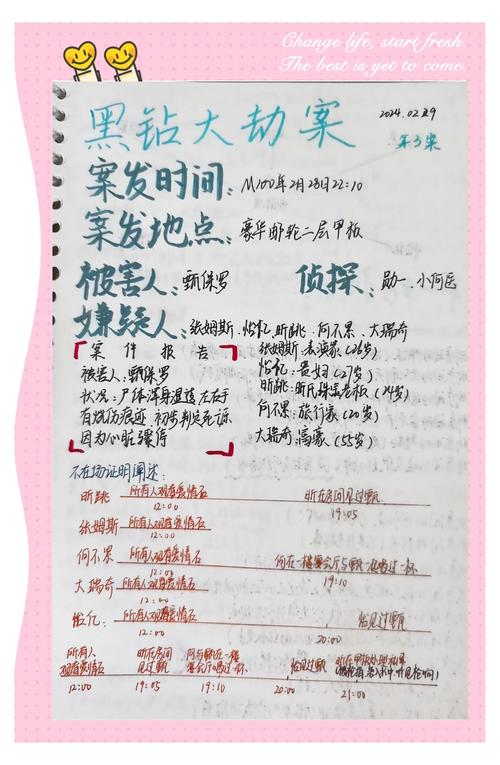 Change life, start fresh.
The best is yet to come.
2024.02.29
黑钻大劫案
第3案
案发时间：M100年2月28日22:10
案发地点：豪华邮轮二层甲板
被害人：甄保罗 侦探：勋一.小何医
嫌疑人：张姆斯.怡忆.昕眺.何不果.大瑞奇
案件报告
被害人：甄保罗
状况：尸体浑身湿透左右手
有烧伤痕迹.初步判定死
因为心脏骤停
张姆斯：表演家(26岁)
怡忆：贵妇(27岁)
昕眺：昕氏珠宝老板(24岁)
何不果：旅行家(20岁)
大瑞奇：富豪(55岁)
不在场证明阐述：
昕眺 所有人观看爱情石 昕在房间见过甄
12:00 19:05
张姆斯 所有人观看爱情石
12:00
何不果 所有人观看爱情石 何在一楼宴会厅与甄一起喝过一杯
12:00 19:10
大瑞奇 所有人观看爱情石
12:00
怡忆：所有人观看爱情石 怡见过甄
12:00 20:00
所有人 昕在房间 何与甄在一楼
观看爱情石 见过甄 宴会厅喝过一杯 怡见过甄
12:00 19:05 19:10 20:00 21:00